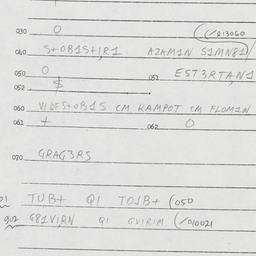 030 0 (/213060
040 S+OB1S+1R1 AZKM1N S1MN81)
050 0 051 EST3RTA,N1
052 $
060 VIDES+OB1S CM KAMPOT CM FLOM1N
061 + 062 0
070 GRAG3RS
01 TUB+ Q1 TO1B+ (050
902 G81V1RN Q1 GVIRIM (/010021